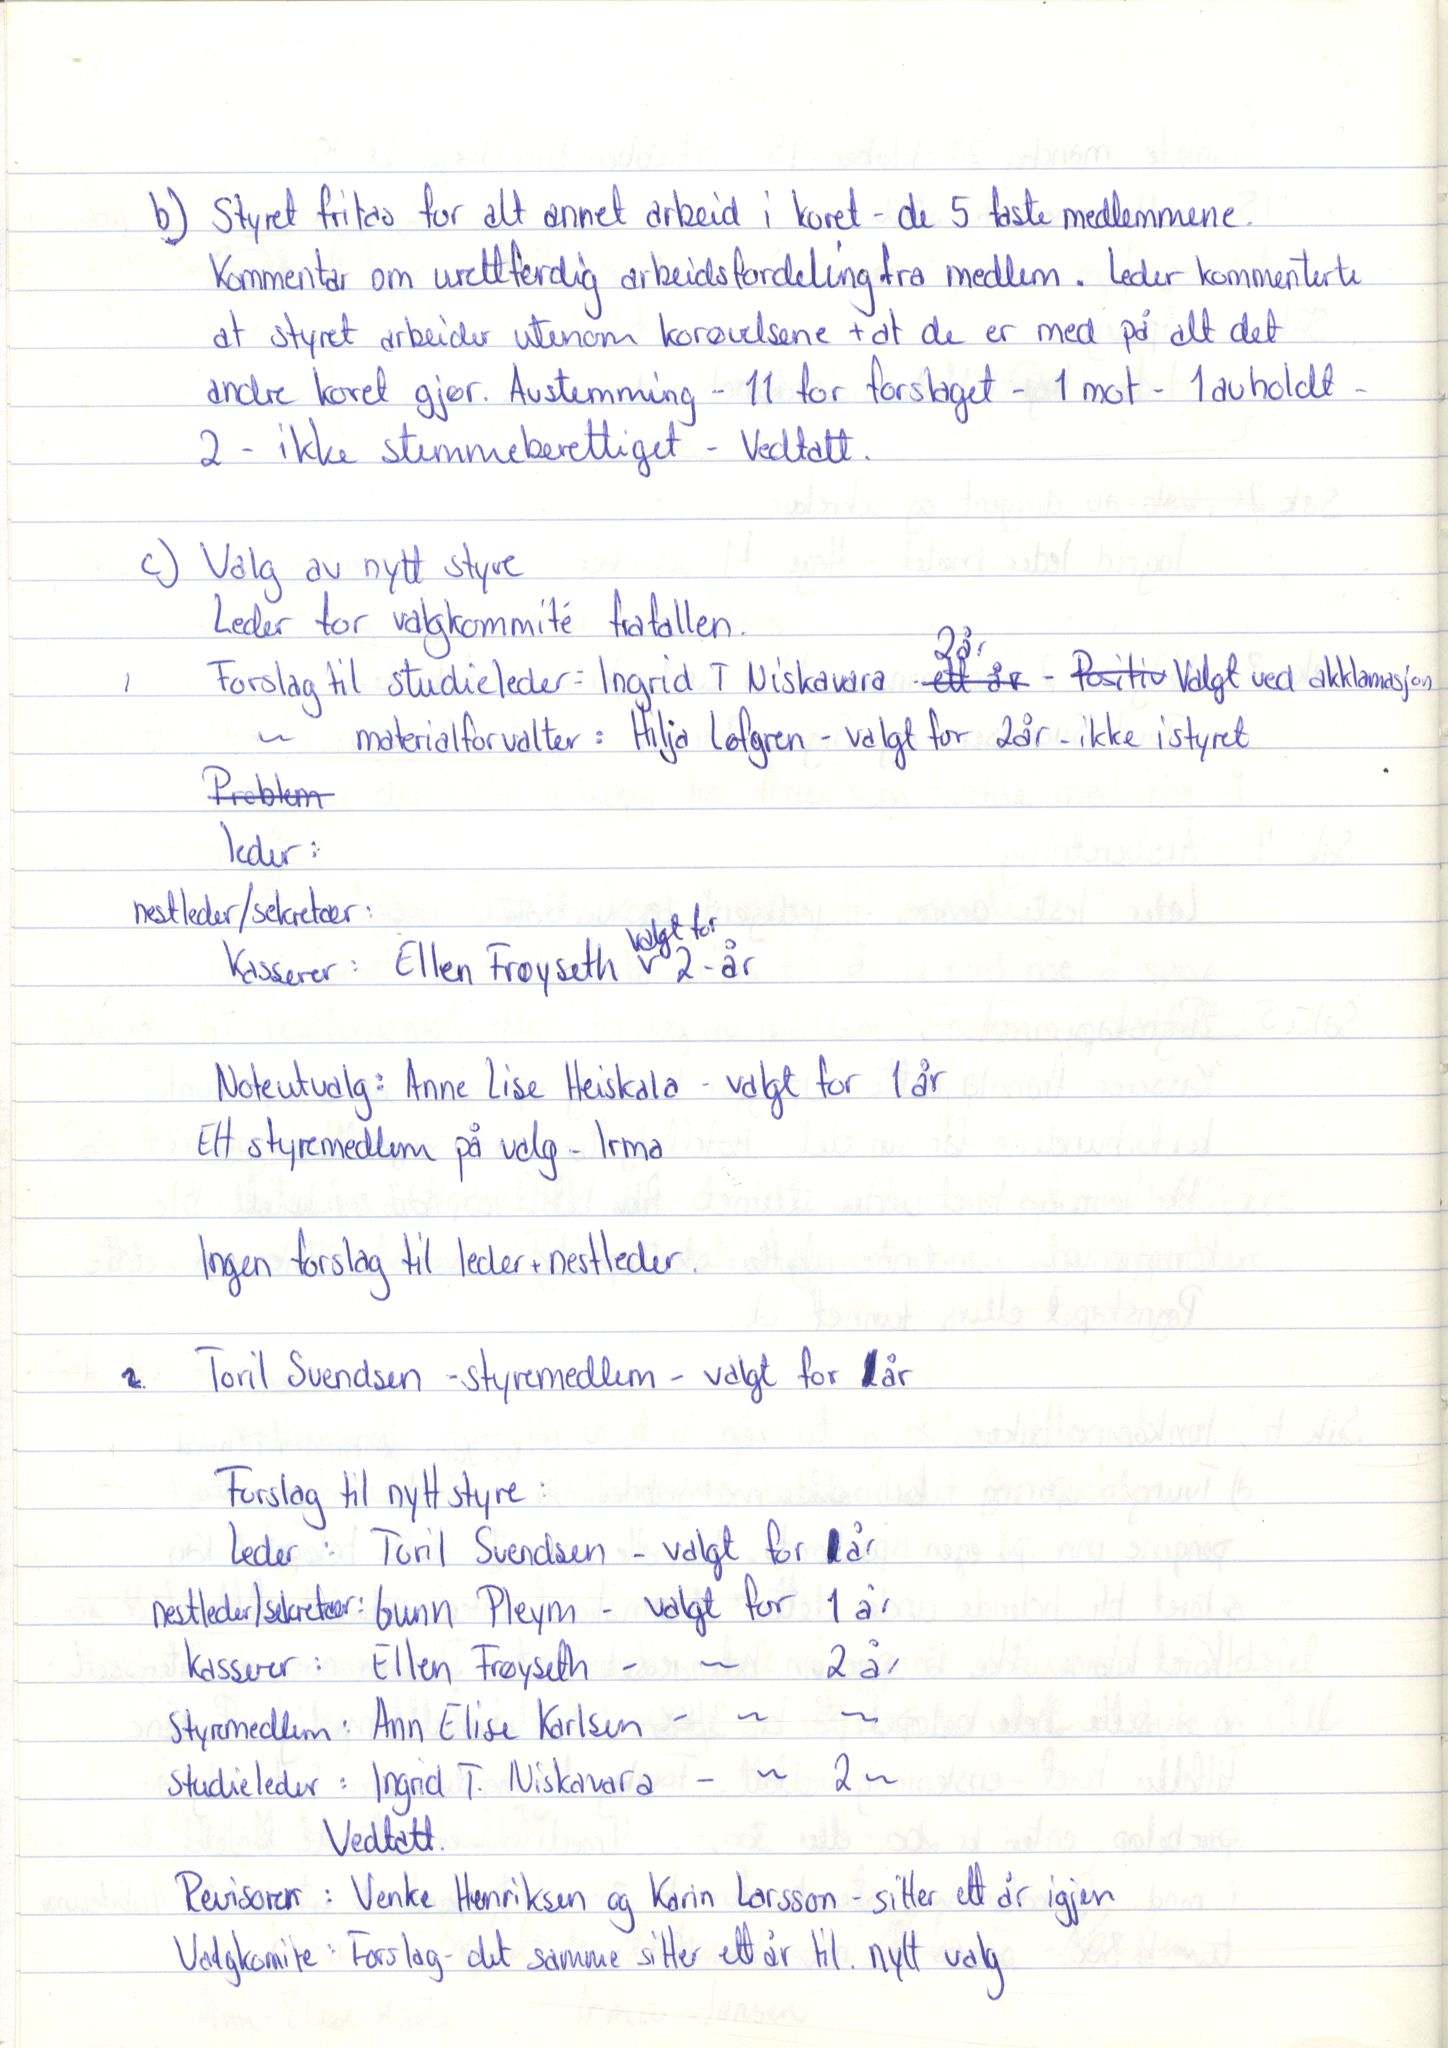 b) Styret fritas for alt annet arbeid i koret - de 5 faste medlemmene.
Kommentar om urettferdig arbeidsfordeling fra medlem. Leder kommenterte
at styret arbeider utenom korøvelsene + at de er med på alt det
andre koret gjør. Avstemming - 11 for forslaget - 1 mot - 1 avholdt -
2 - ikke stemmeberettiget - Vedtatt.
c) Valg av nytt styre
Leder for valgkommité frafallen.
2 år
1 Forslag til studieleder = Ingrid T Niskavara ett år - Positiv Valgt ved akklamasjon
~ materialforvalter : Hilja Løfgren - valgt for 2 år - ikke i styret
Problem
leder :
nestleder/sekretær :
valgt for
Kasserer : Ellen Frøyseth v 2 - år
Noteutvalg : Anne Lise Heiskala - valgt for 1 år
Ett styremedlem på valg - Irma
Ingen forslag til leder + nestleder.
2. Toril Svendsen - styremedlem - valgt for 1 år
Forslag til nytt styre :
Leder : Toril Svendsen - valgt for 1 år
nestleder/sekretær : Gunn Pleym - valgt for 1 år
Kasserer : Ellen Frøyseth - ~ 2 år
Styremedlem : Ann Elise Karlsen - ~ ~
Studieleder : Ingrid T. Niskavara - ~ 2 ~
Vedtatt.
Revisorer : Venke Henriksen og Karin Larsson - sitter ett år igjen
Valgkomite : Forslag - det samme sitter ett år til. nytt valg